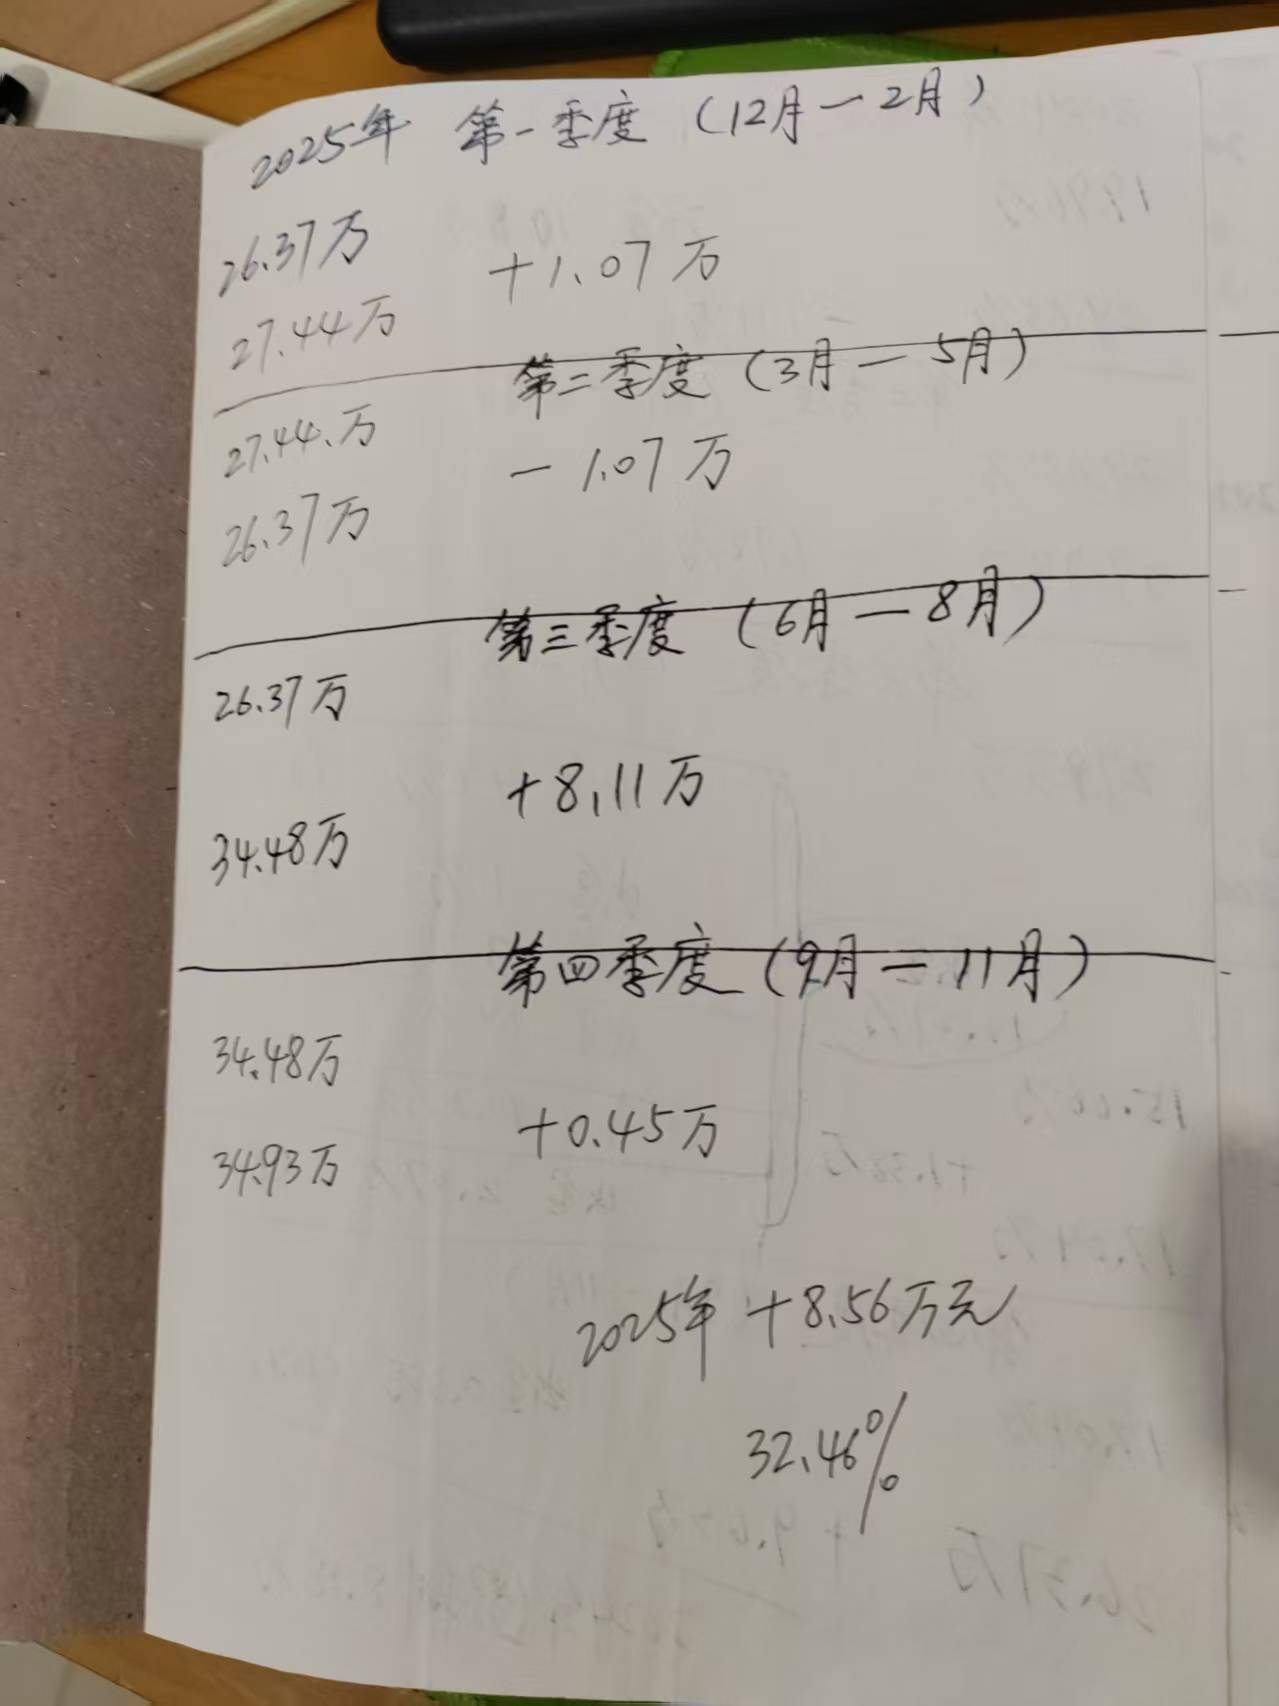 2025年 第一季度 (12月一2月)
26.37万
+1.07万
27.44万
第二季度 (3月一5月)
27.44.万
- 1.07万
26.37万
第三季度 (6月一8月)
26.37万
+8.11万
34.48万
第四季度 (9月一11月)
34.48万
+0.45万
34.93万
2025年 +8.56万元
32.46%